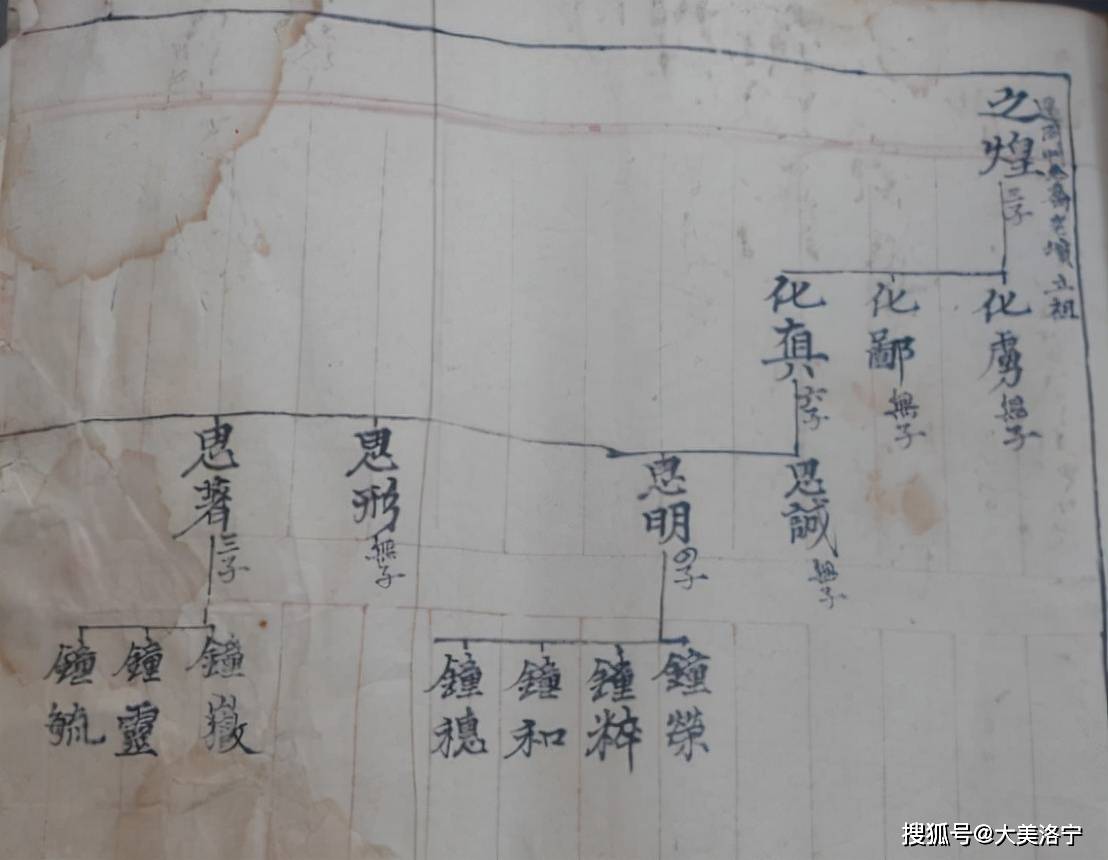 之煌
三子
立祖
化虏 無子
化鄙 無子
化真 六子
思誠 無子
思明 四子
思形 無子
思著 三子
鐘榮
鐘粹
鐘和
鐘穗
鐘嶽
鐘靈
鐘毓
搜狐号@大美洛宁